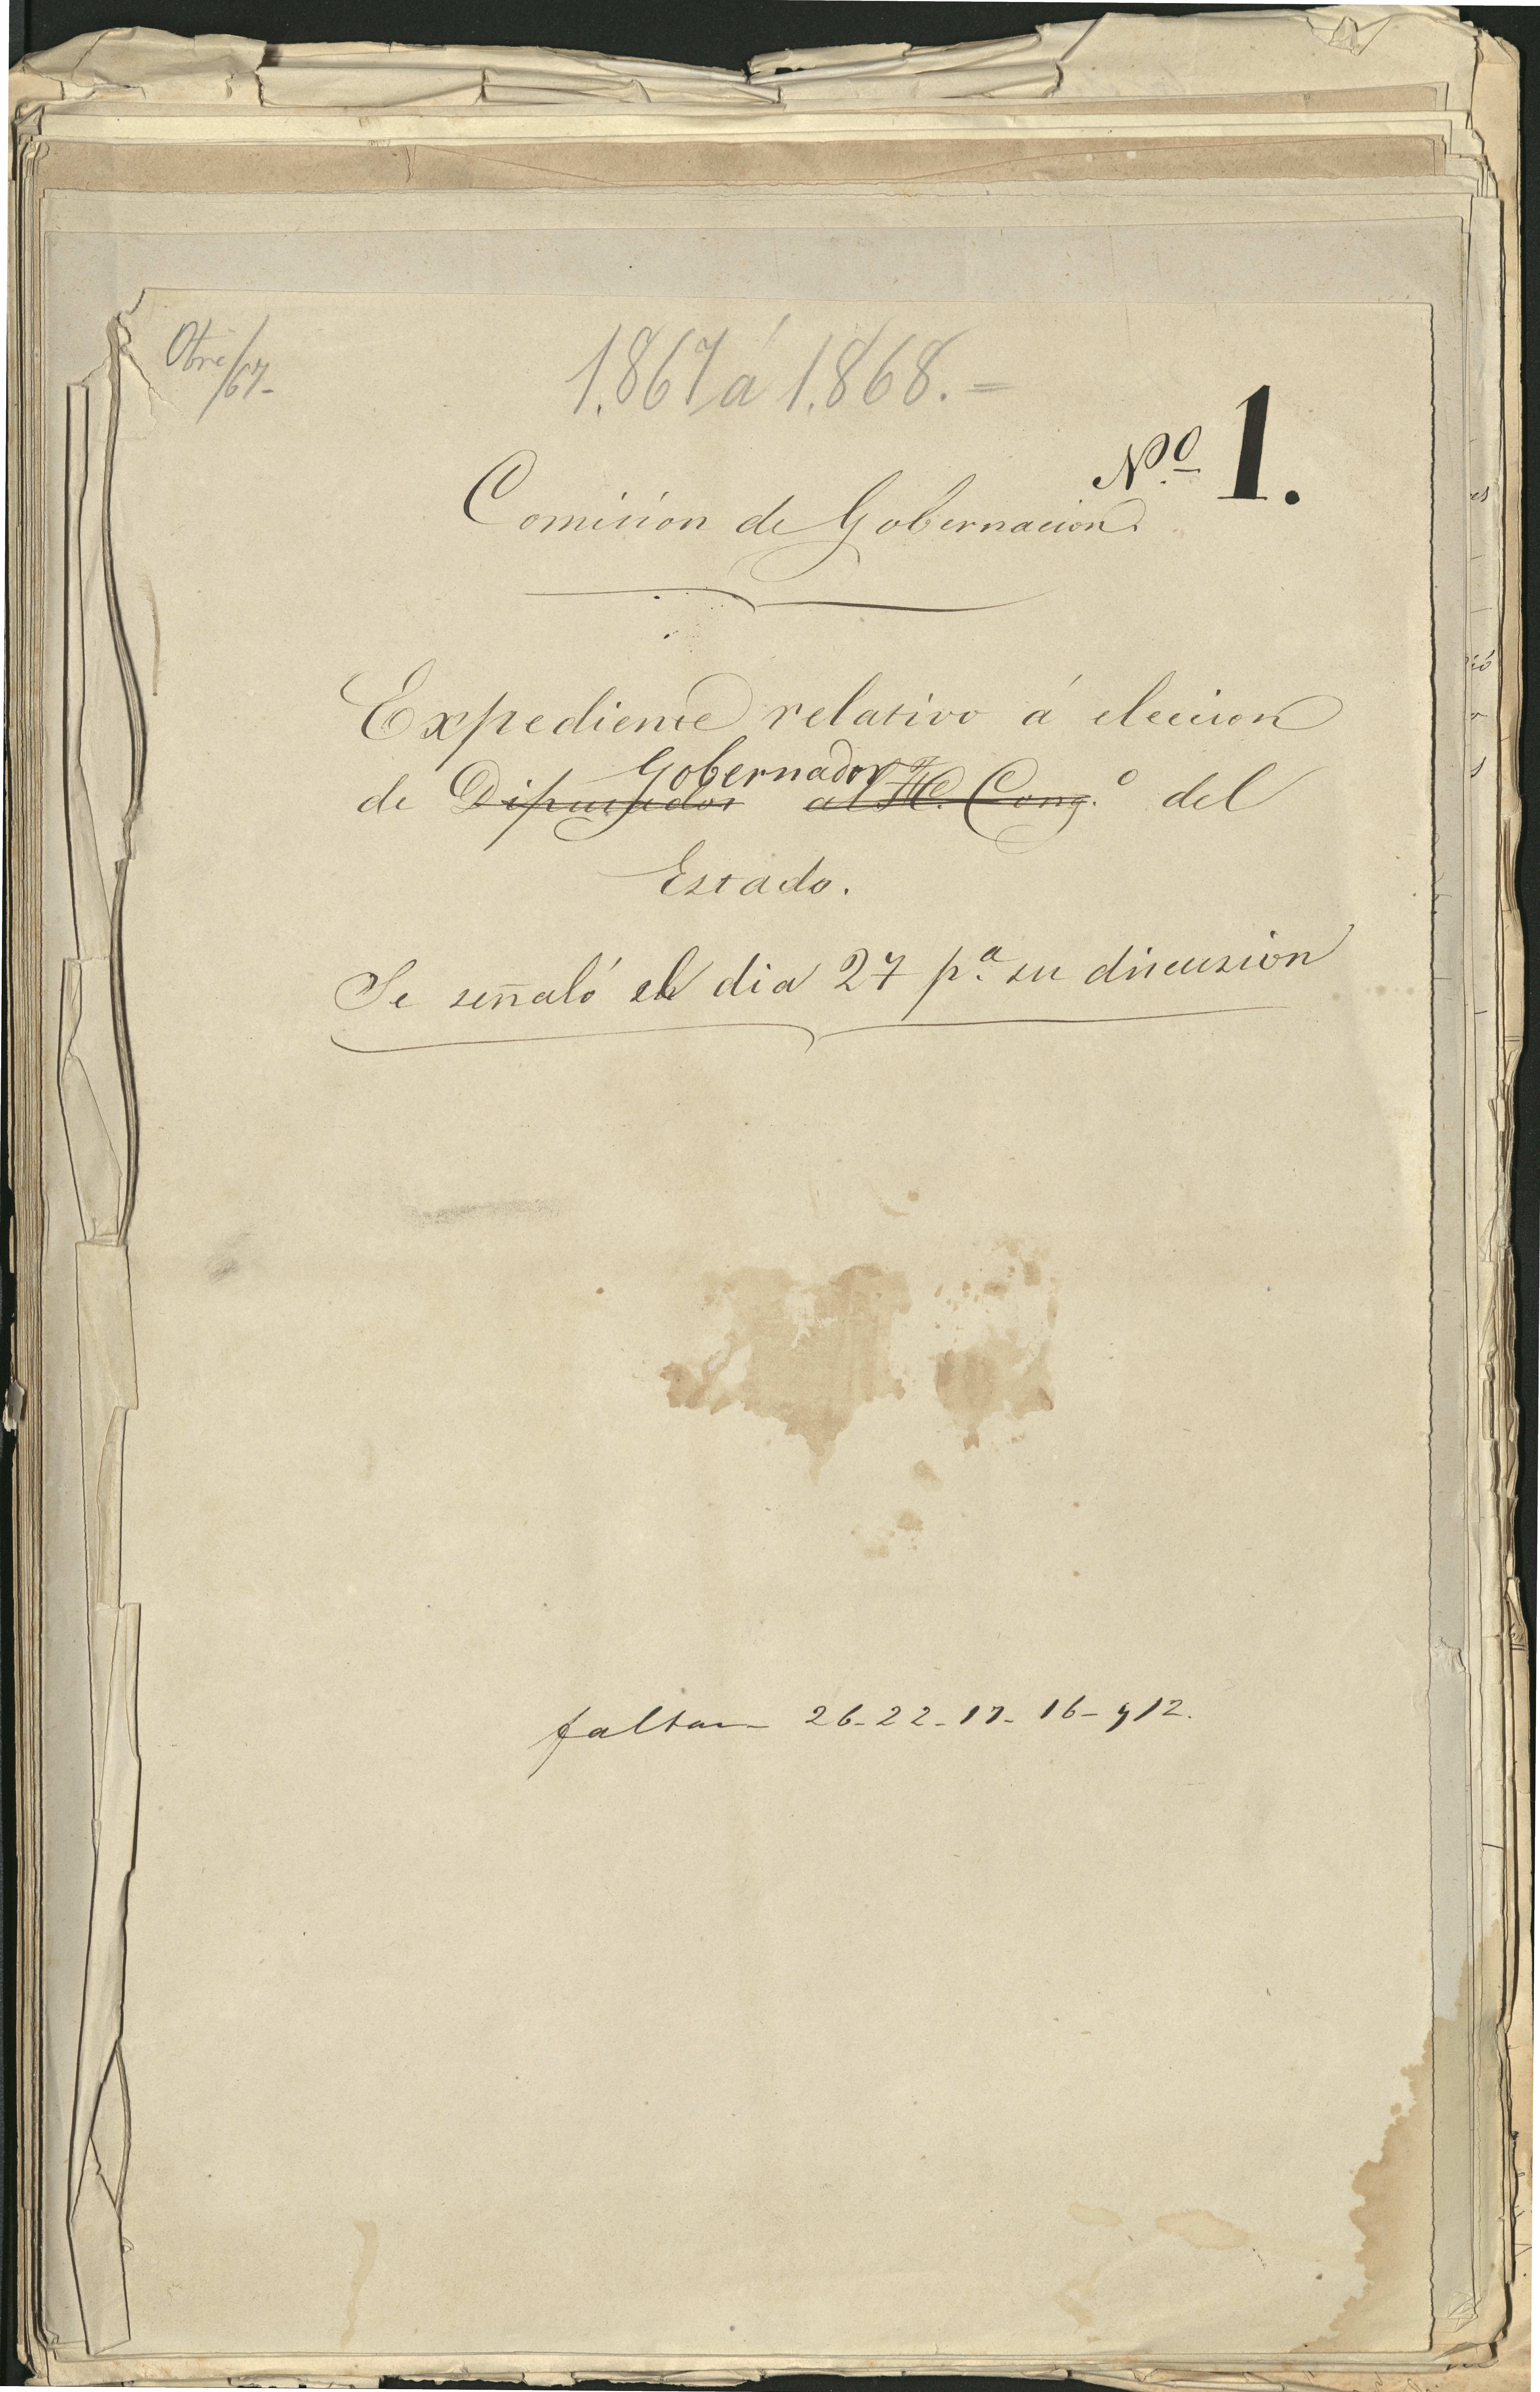 Obre/67-
1.867 á 1.868.=
Nº 1.
Comision de Gobernacion.
Expediente relativo á eleccion
Gobernador
de Diputados al H. Cong.º del
Estado.
Se señaló el dia 27 p.ª su discusion
faltan 26-22-17-16-y12.